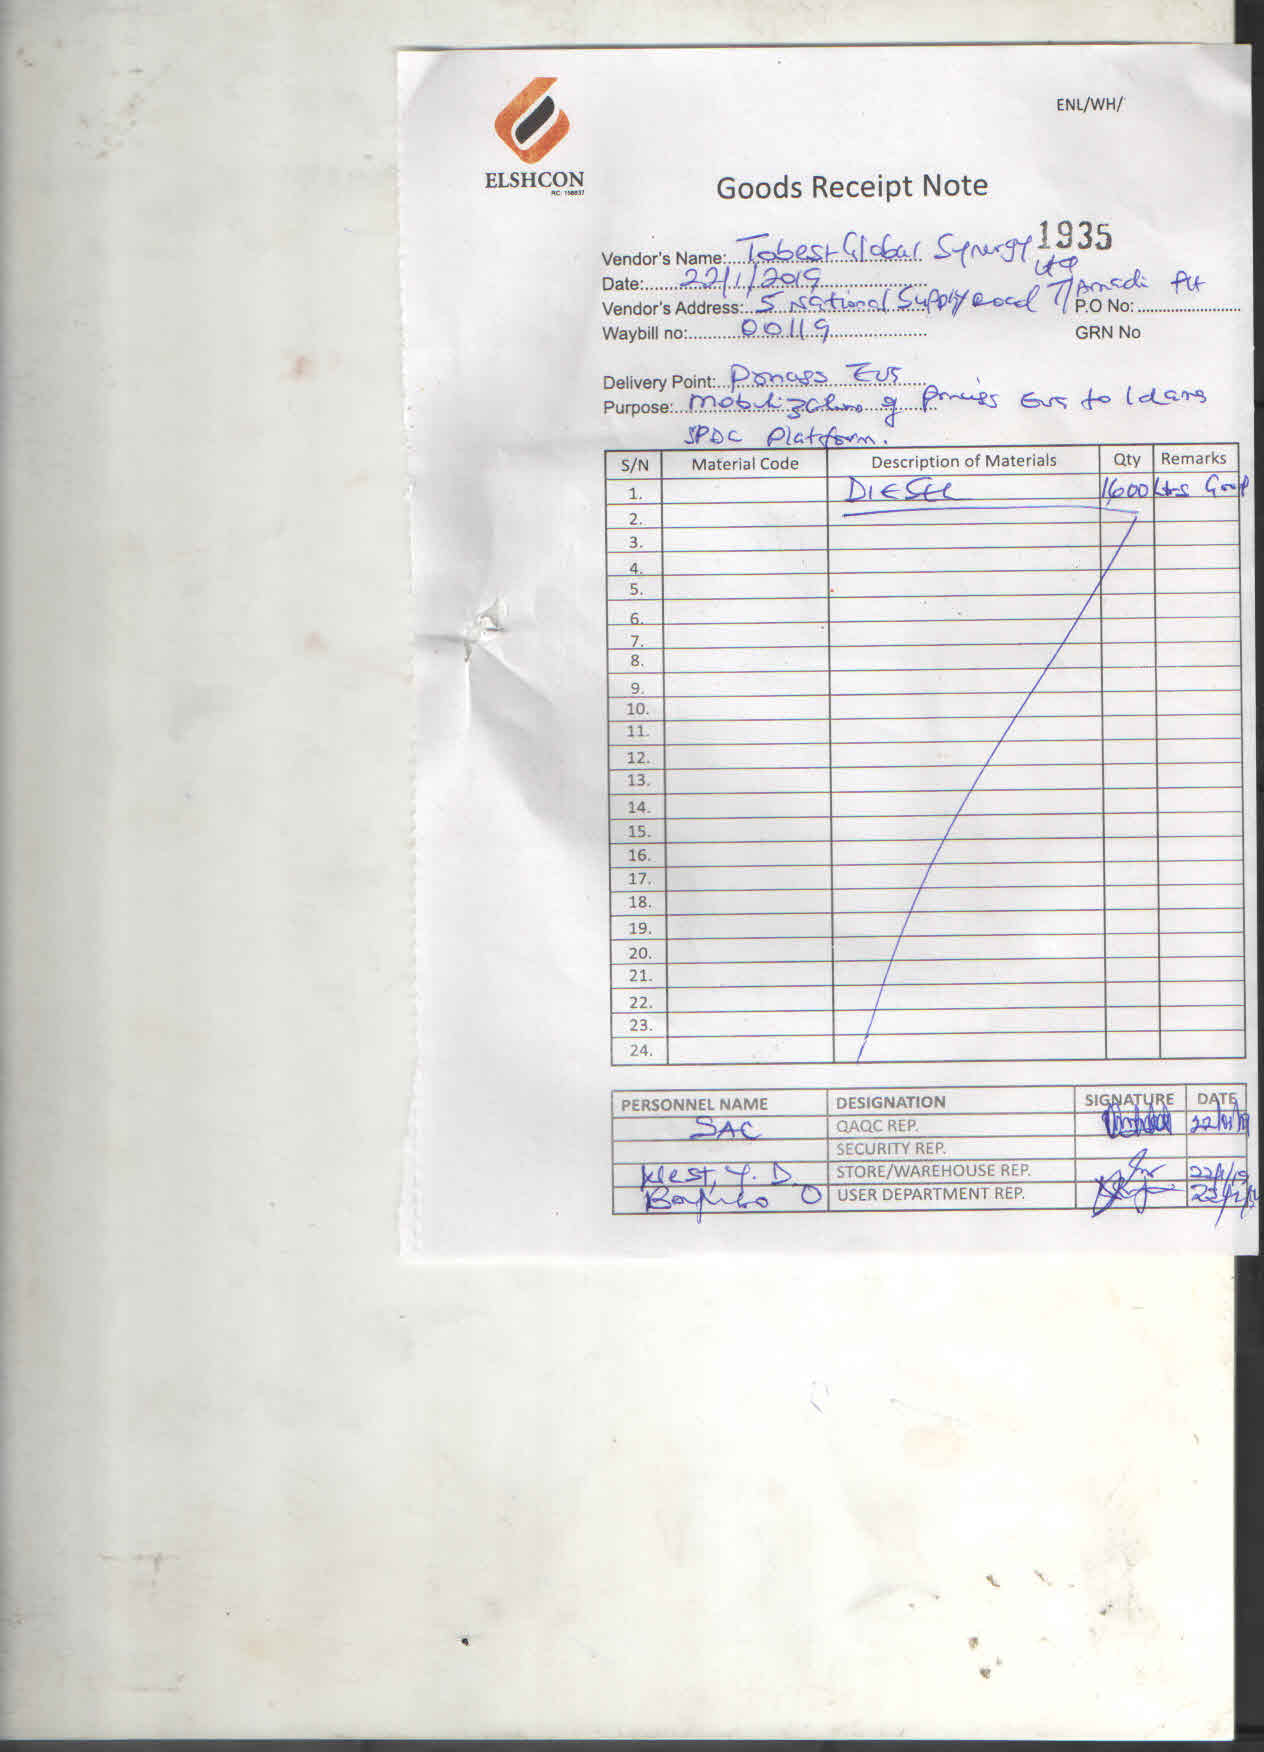 ENL/WH/
ELSHCON
RC 156837
Goods Receipt Note
1935
Vendor's Name: Tobest Global Synergy Ltd
Date: 22/1/2019
Vendor's Address: 5 National Supply Road T/Amadi PH
P.O No:
Waybill no: 00119
GRN No
Delivery Point:
Purpose: Mobilization of to
SPDC Platform.
S/N Material Code Description of Materials Qty Remarks
1. DIESEL 1,600 Ltrs Good
2.
3.
4.
5.
6.
7.
8.
9.
10.
11.
12.
13.
14.
15.
16.
17.
18.
19.
20.
21.
22.
23.
24.
PERSONNEL NAME DESIGNATION SIGNATURE DATE
SAC QAQC REP.
SECURITY REP.
West, Y. D. STORE/WAREHOUSE REP. 22/1/19
O USER DEPARTMENT REP.